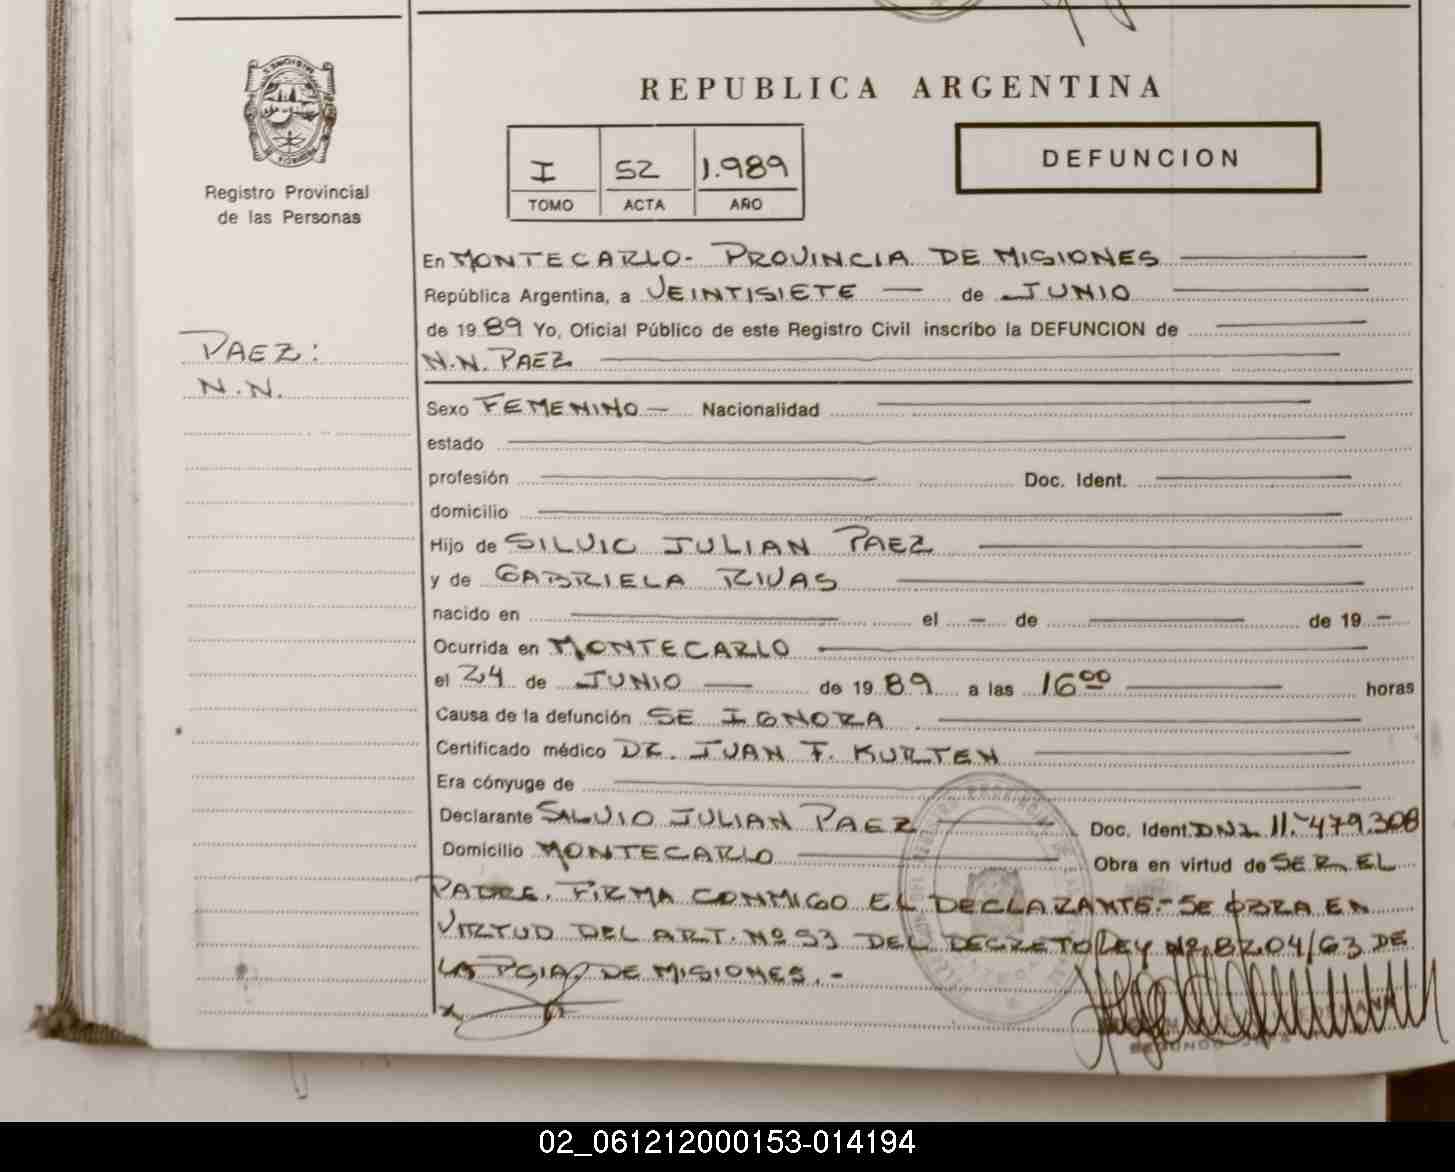 REPUBLICA ARGENTINA
Registro Provincial
de las Personas
I 52 1.989
TOMO ACTA AÑO
DEFUNCION
PAEZ:
N.N.
En MONTECARLO- PROVINCIA DE MISIONES
República Argentina, a VEINTISIETE — de JUNIO
de 1989 Yo, Oficial Público de este Registro Civil inscribo la DEFUNCION de
N.N. PAEZ
Sexo FEMENINO — Nacionalidad
estado
profesión Doc. Ident.
domicilio
Hijo de SILVIO JULIAN PAEZ
y de GABRIELA RIVAS
nacido en el — de de 19 —
Ocurrida en MONTECARLO
el 24 de JUNIO — de 1989 a las 16⁰⁰ horas
Causa de la defunción SE IGNORA
Certificado médico DR. JUAN F. KURTEN
Era cónyuge de
Declarante SILVIO JULIAN PAEZ Doc. Ident. DNI. 11.479.308
Domicilio MONTECARLO Obra en virtud de SER EL
PADRE. FIRMA CONMIGO EL DECLARANTE.- SE OBRA EN
VIRTUD DEL ART. Nº 53 DEL DECRETO LEY Nº 8204/63 DE
LA PCIA. DE MISIONES.-
02_061212000153-014194